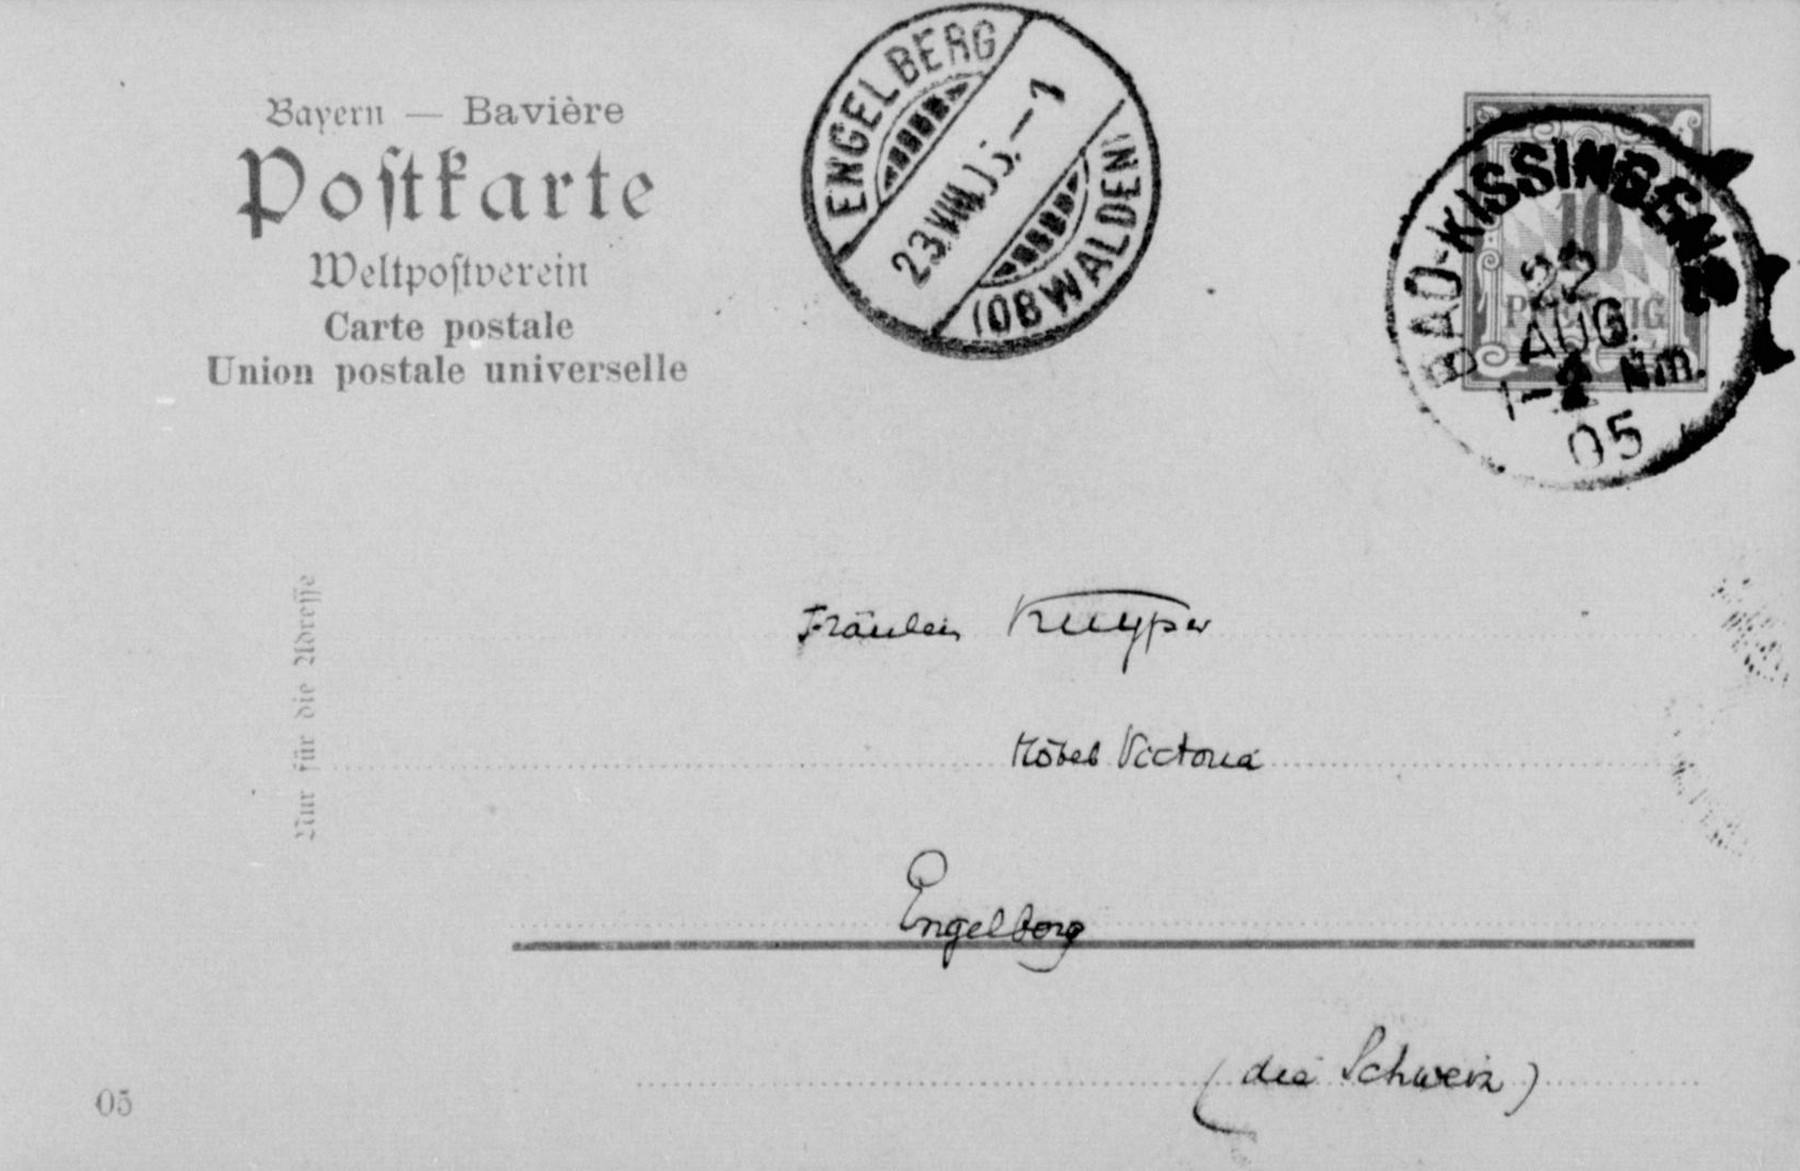 Bayern — Bavière
Postkarte
Weltpostverein
Carte postale
Union postale universelle
ENGELBERG
23.VIII.05.–1
(OBWALDEN)
10
PFENNIG
BAD-KISSINGEN
22
AUG.
1-2 Nm.
05
Nur für die Adresse
Fräulein Kuyper
Hôtel Victoria
Engelberg
(die Schweiz)
05